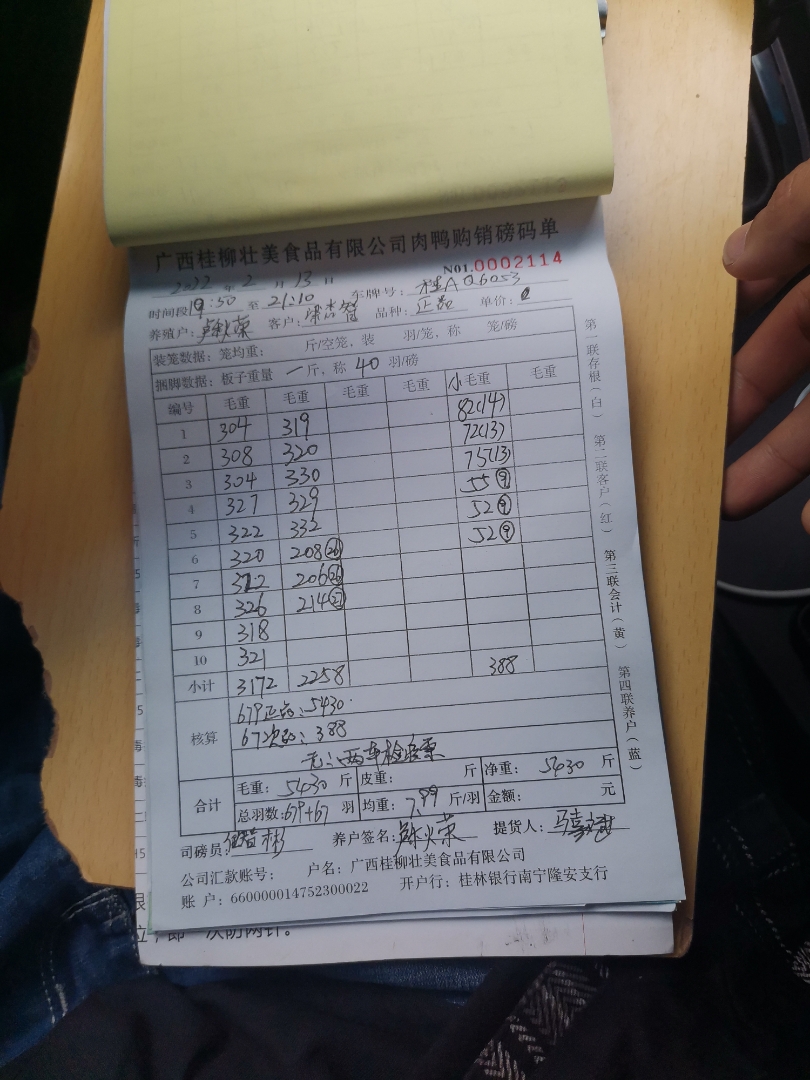 广西桂柳壮美食品有限公司肉鸭购销磅码单
N01.0002114
2022年2月13日 车牌号：桂AQ6053
时间段19:50至21:10
养殖户： 客户： 品种：正品 单价：
装笼数据：笼均重： 斤/空笼，装 羽/笼，称 笼/磅
捆脚数据：板子重量 一斤，称 40 羽/磅
编号 毛重 毛重 毛重 毛重 小毛重 毛重
1 304 319 82(14)
2 308 320 72(13)
3 304 330 75(13)
4 327 329 55⑨
5 322 332 52⑨
6 320 208㉖ 52⑨
7 312 206㉖
8 326 214㉗
9 318
10 321
小计 3172 2258 388
核算 679正品：5430
67次品：388
无：两车检疫票
合计 毛重：5430斤 皮重： 斤 净重：5430斤
总羽数：679+67羽 均重：7.99斤/羽 金额： 元
司磅员： 养户签名： 提货人：
公司汇款账号： 户名：广西桂柳壮美食品有限公司
账 户：660000014752300022 开户行：桂林银行南宁隆安支行
第一联存根（白） 第二联客户（红） 第三联会计（黄） 第四联养户（蓝）